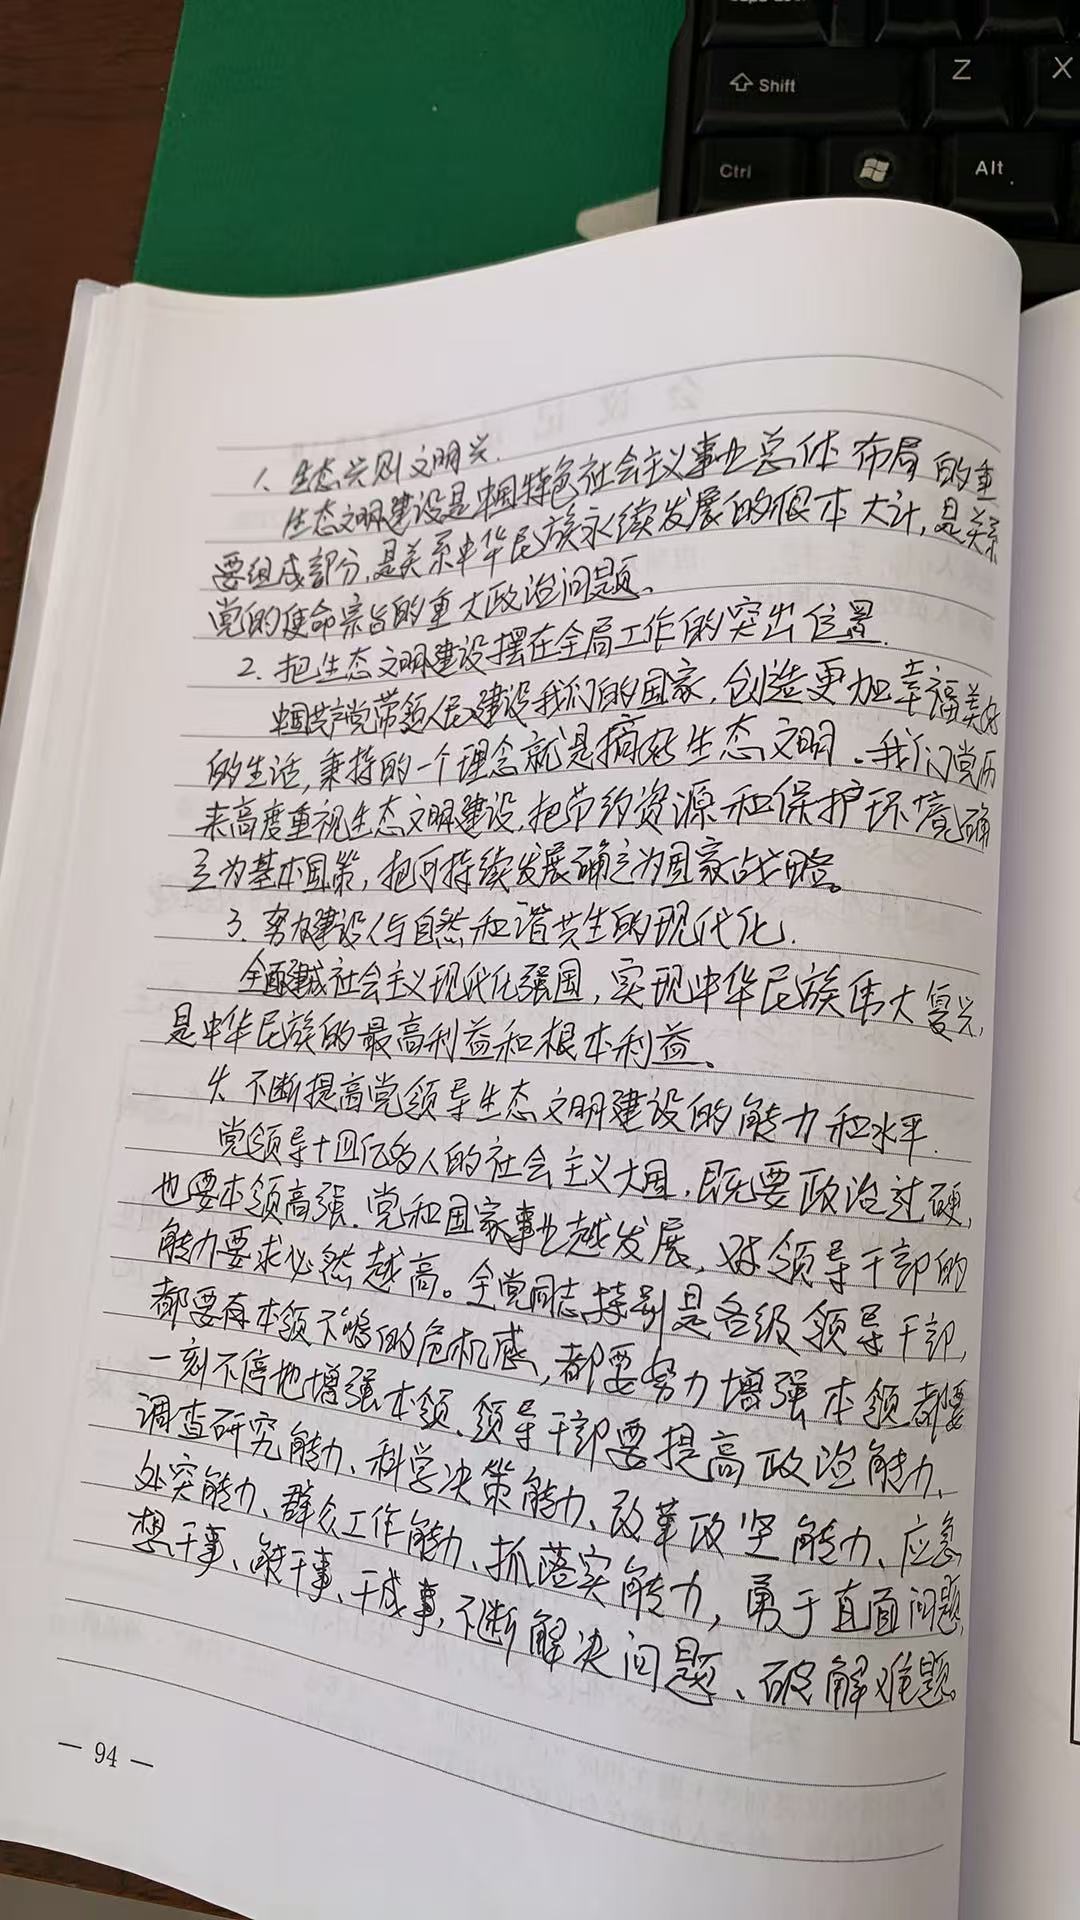 Shift
Z
X
Ctrl
Alt
1. 生态兴则文明兴.
生态文明建设是中国特色社会主义事业总体布局的重
要组成部分,是关系中华民族永续发展的根本大计,是关系
党的使命宗旨的重大政治问题。
2. 把生态文明建设摆在全局工作的突出位置.
中国共产党带领人民建设我们的国家,创造更加幸福美好
的生活,秉持的一个理念就是搞好生态文明。我们党历
来高度重视生态文明建设,把节约资源和保护环境确
立为基本国策,把可持续发展确立为国家战略。
3. 努力建设人与自然和谐共生的现代化.
全面建成社会主义现代化强国,实现中华民族伟大复兴,
是中华民族的最高利益和根本利益。
4. 不断提高党领导生态文明建设的能力和水平.
党领导十四亿多人的社会主义大国,既要政治过硬,
也要本领高强.党和国家事业越发展,对领导干部的
能力要求必然越高。全党同志特别是各级领导干部,
都要有本领不够的危机感,都要努力增强本领都要
一刻不停地增强本领.领导干部要提高政治能力、
调查研究能力、科学决策能力、改革攻坚能力、应急
处突能力、群众工作能力、抓落实能力,勇于直面问题,
想干事、能干事、干成事,不断解决问题、破解难题。
— 94 —